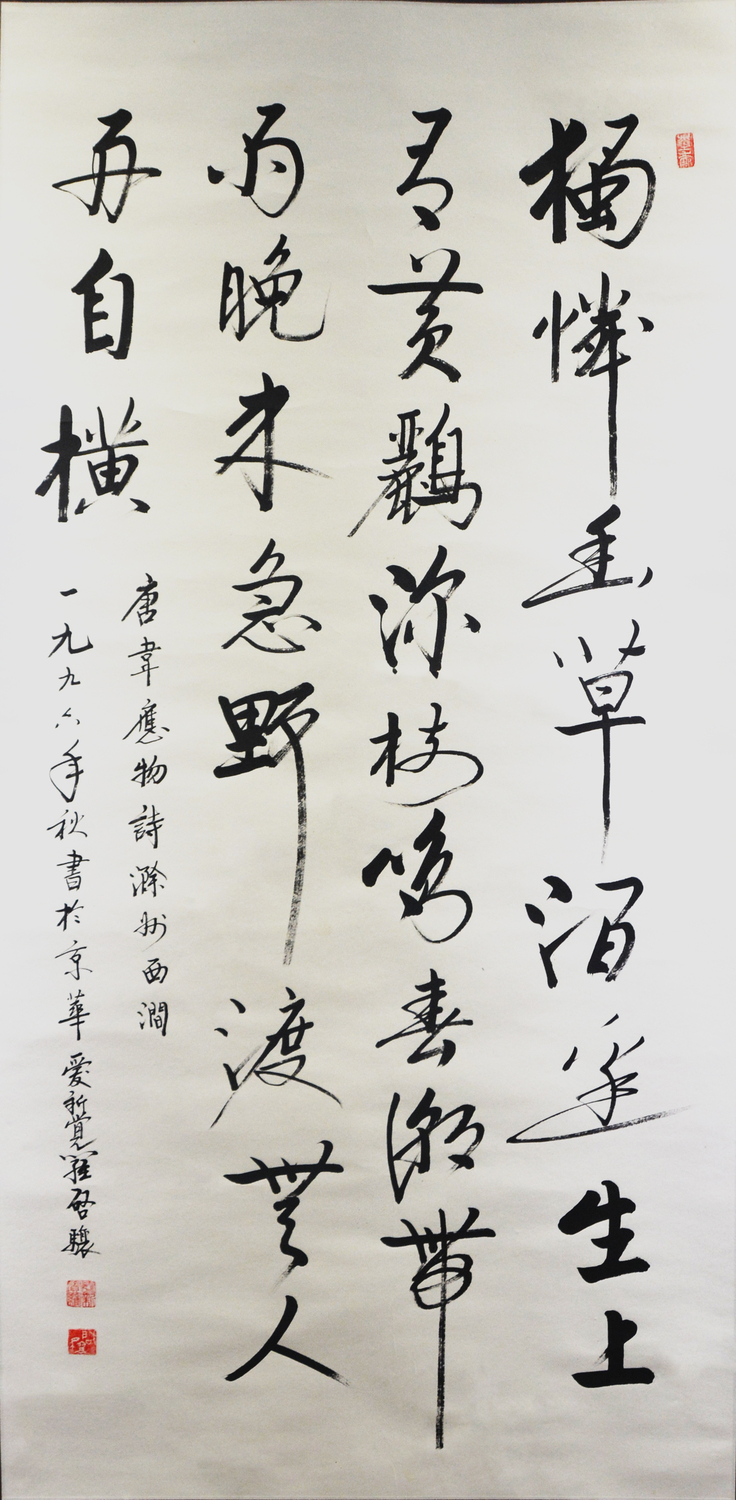 獨憐幽草澗邊生上
有黃鸝深枝鳴春潮帶
雨晚來急野渡無人
舟自橫
唐韋應物詩滁州西澗
一九九六年秋書於京華愛新覺羅啓驤